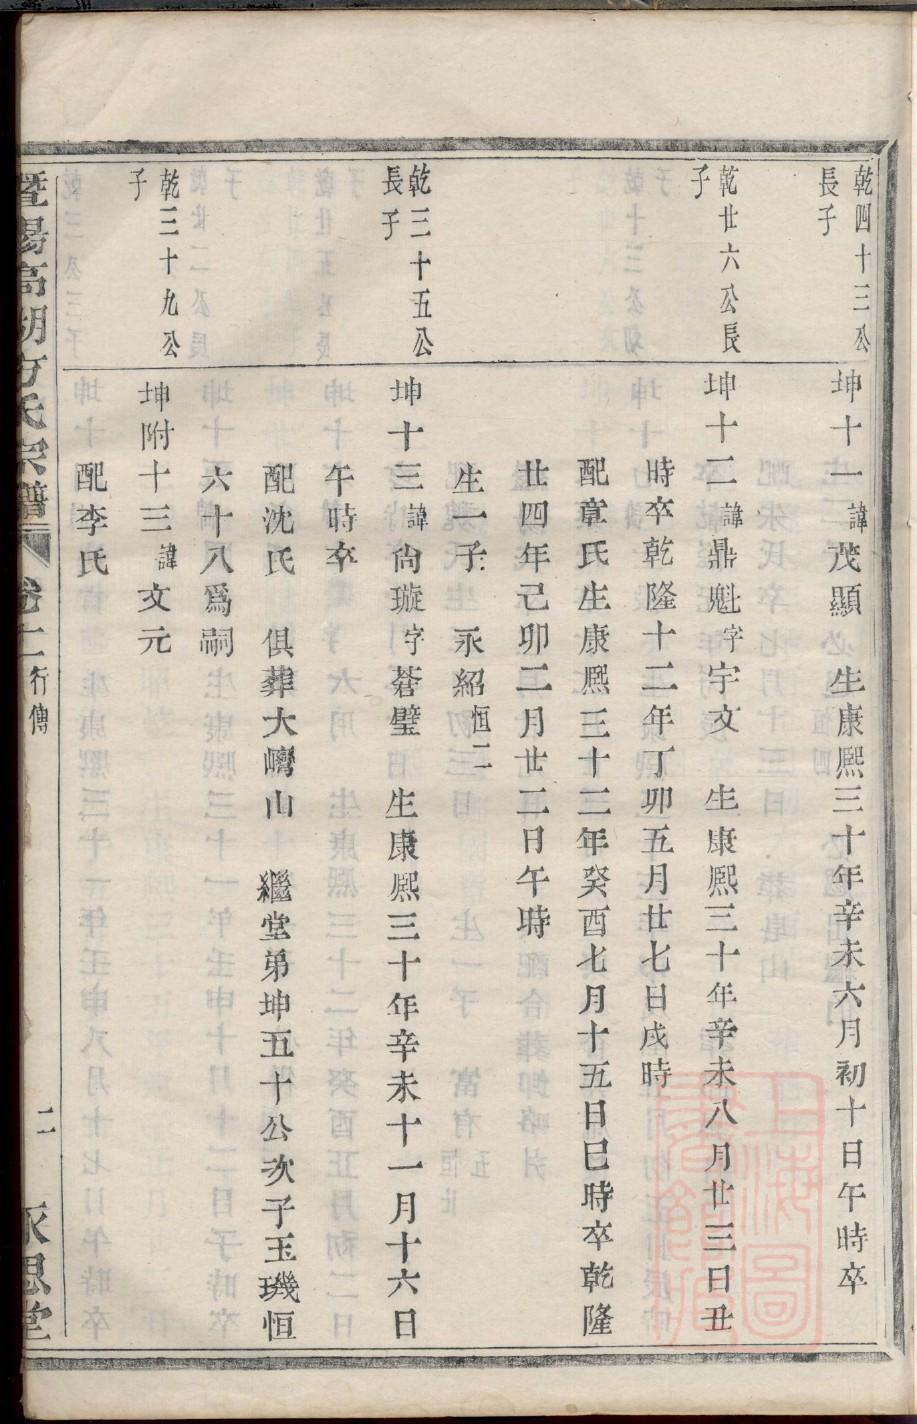 乾四十三公
長子
坤十一諱茂顯　生康熙三十年辛未六月初十日午時卒
乾廿六公長
子
坤十二諱鼎魁字宇文　生康熙三十年辛未八月廿三日丑
時卒乾隆十二年丁卯五月廿七日戌時
配章氏生康熙三十二年癸酉七月十五日巳時卒乾隆
廿四年己卯二月廿二日午時
生一子　永紹恒二
乾三十五公
長子
坤十三諱尙璇字蒼璧　生康熙三十年辛未十一月十六日
午時卒
配沈氏　俱葬大山　繼堂弟坤五十公次子玉璣恒
六十八爲嗣
乾三十九公
子
坤附十三諱文元
配李氏
暨陽高湖方氏宗譜　卷　行傳　二　永思堂
上海圖書館藏